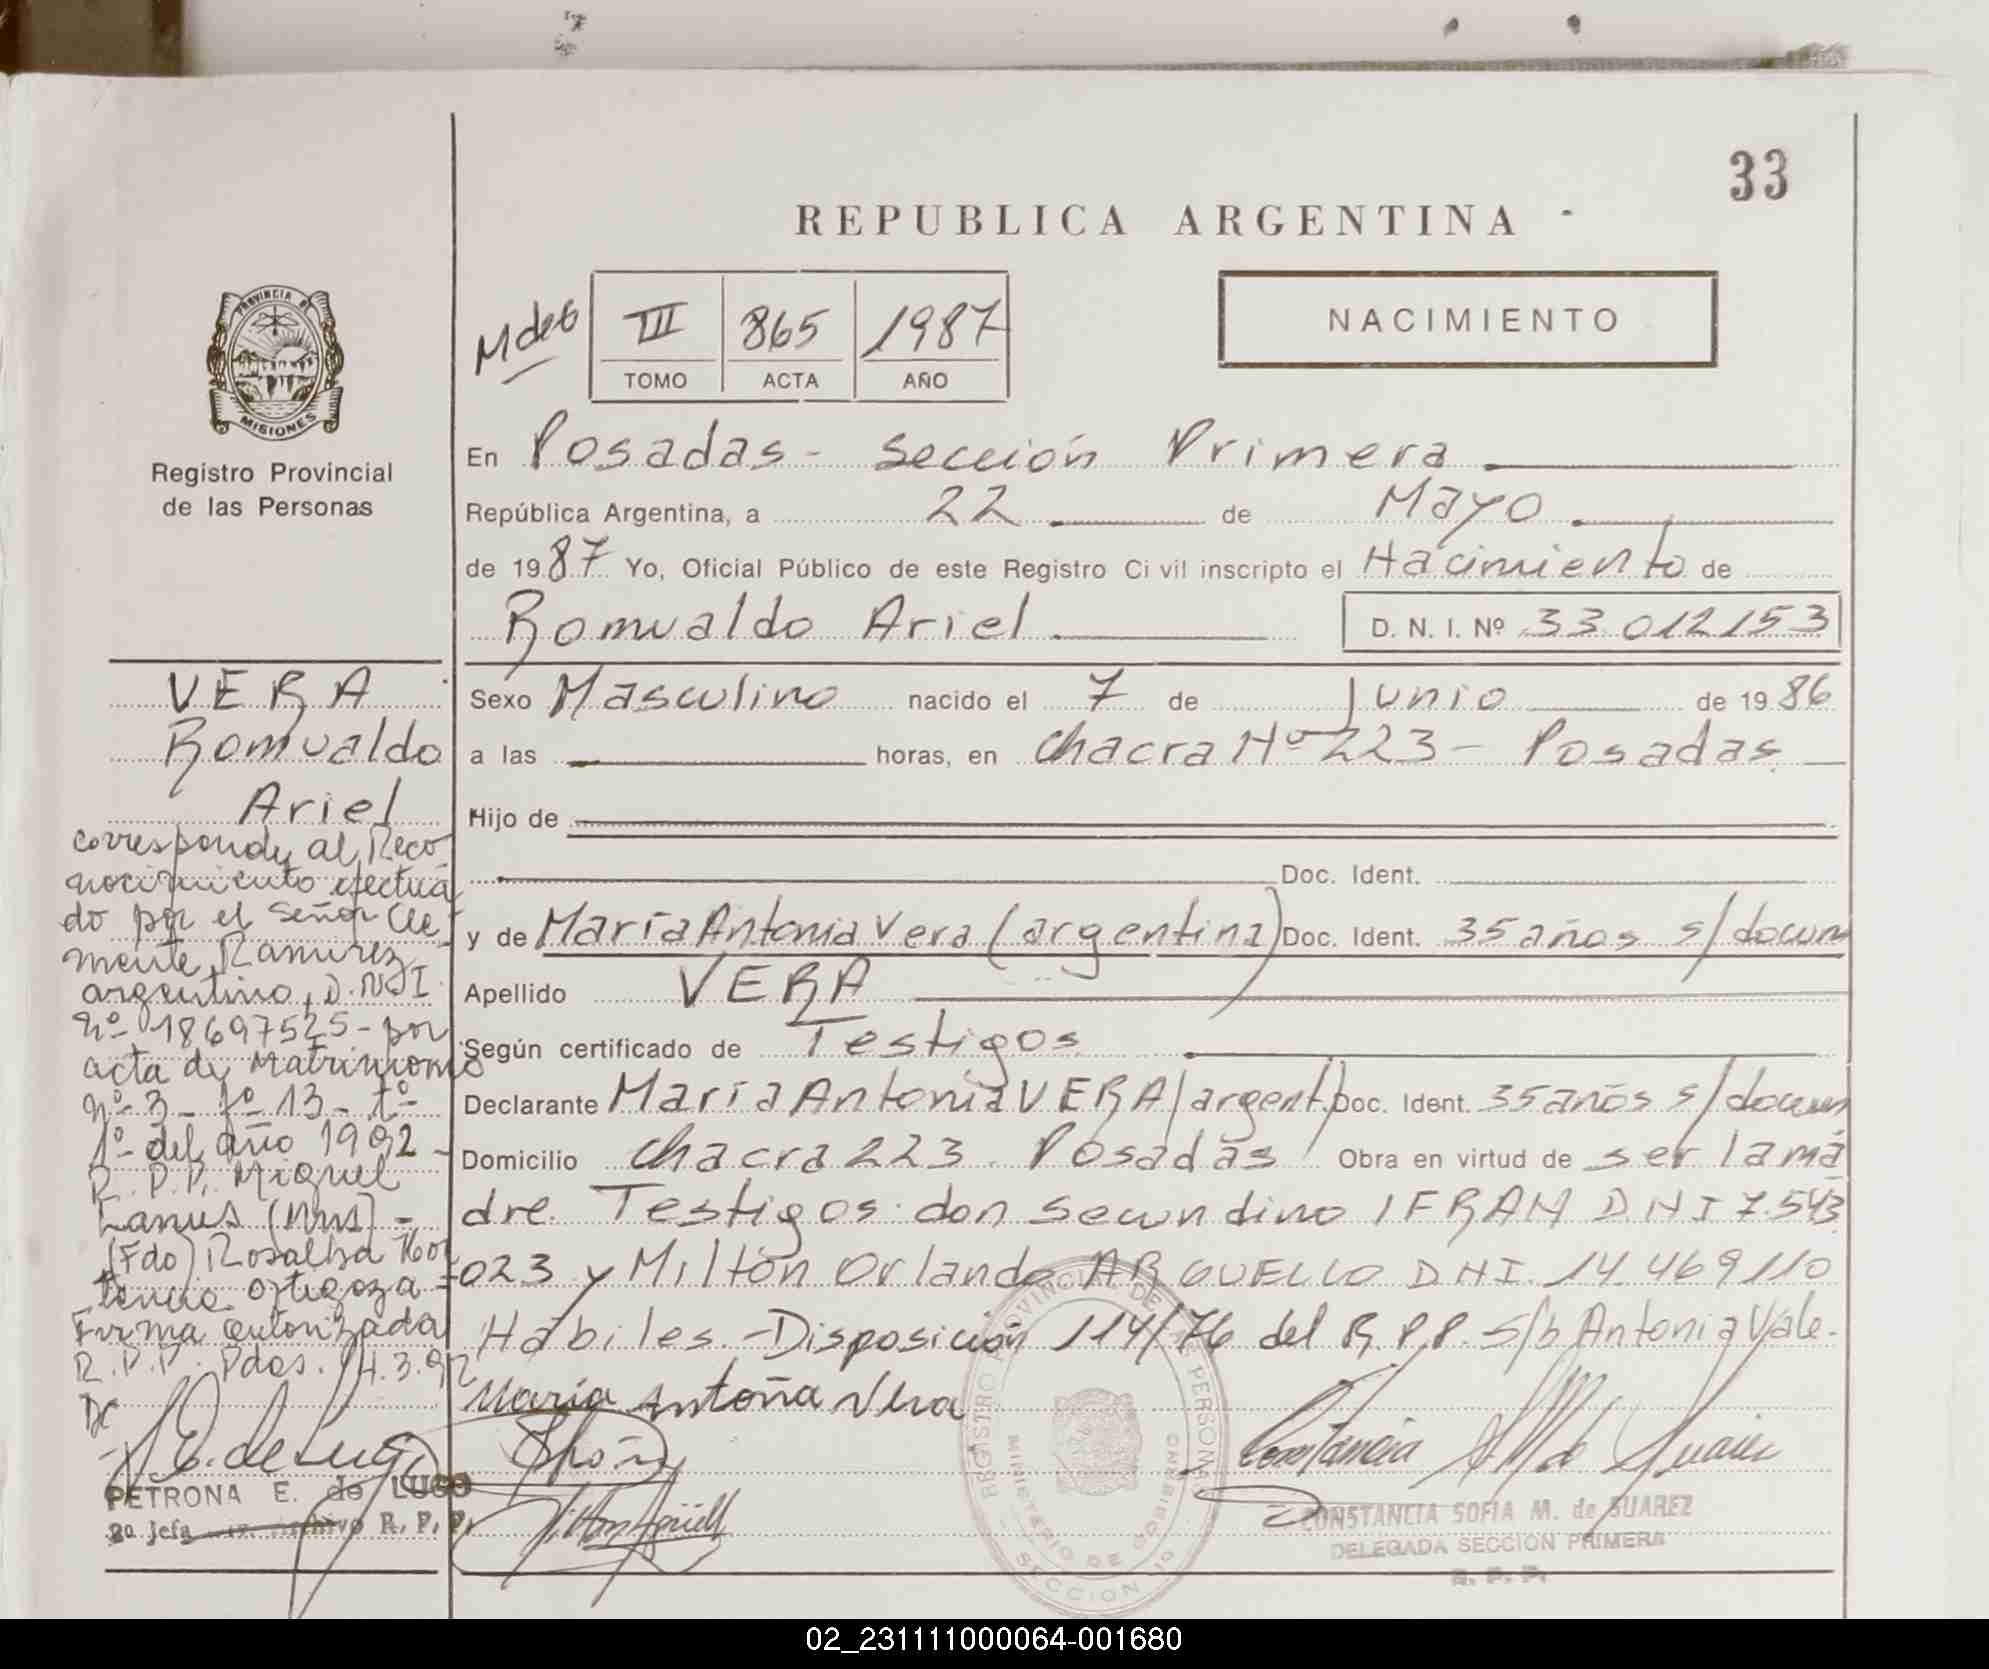 33
REPUBLICA ARGENTINA
Mdeo
III 865 1987
TOMO ACTA AÑO
NACIMIENTO
PROVINCIA DE
MISIONES
Registro Provincial
de las Personas
En Posadas - Sección Primera
República Argentina, a 22 de Mayo
de 1987 Yo, Oficial Público de este Registro Civil inscripto el Nacimiento de
Romualdo Ariel D. N. I. Nº 33 012 153
Sexo Masculino nacido el 7 de Junio de 1986
a las horas, en Chacra Nº 223 - Posadas
Hijo de
Doc. Ident.
y de María Antonia Vera (argentina) Doc. Ident. 35 años s/docum
Apellido VERA
Según certificado de Testigos
Declarante María Antonia VERA (argent.) Doc. Ident. 35 años s/docum
Domicilio Chacra 223 Posadas Obra en virtud de ser la ma
dre. Testigos: don Secundino IFRAN DNI 7.543
023 y Milton Orlando ARGUELLO DNI. 14.469110
Hábiles.-Disposición 114/76 del R.P.P. S/b Antonia Vale.
María Antoña Vera
VERA
Romualdo
Ariel
corresponde al Reco
nocimiento efectua
do por el señor Cle
mente Ramirez
argentino, D.N.I.
nº 18697525 - por
acta de Matrimonio
nº 3 - fº 13 - tº
1º del año 1992 -
R.P.P. Miguel
Lanus (Mns) -
(Fdo) Rosalba
Ortigoza =
Firma autorizada
R.P.P. Pdas. 14.3.92
PETRONA E. de LUGO
2º Jefa Archivo R. P. P.
REGISTRO PROVINCIAL DE LAS PERSONAS
MINISTERIO DE GOBIERNO
SECCION
Constancia S M de Suarez
CONSTANCIA SOFIA M. de SUAREZ
DELEGADA SECCION PRIMERA
R. P. P.
02_231111000064-001680